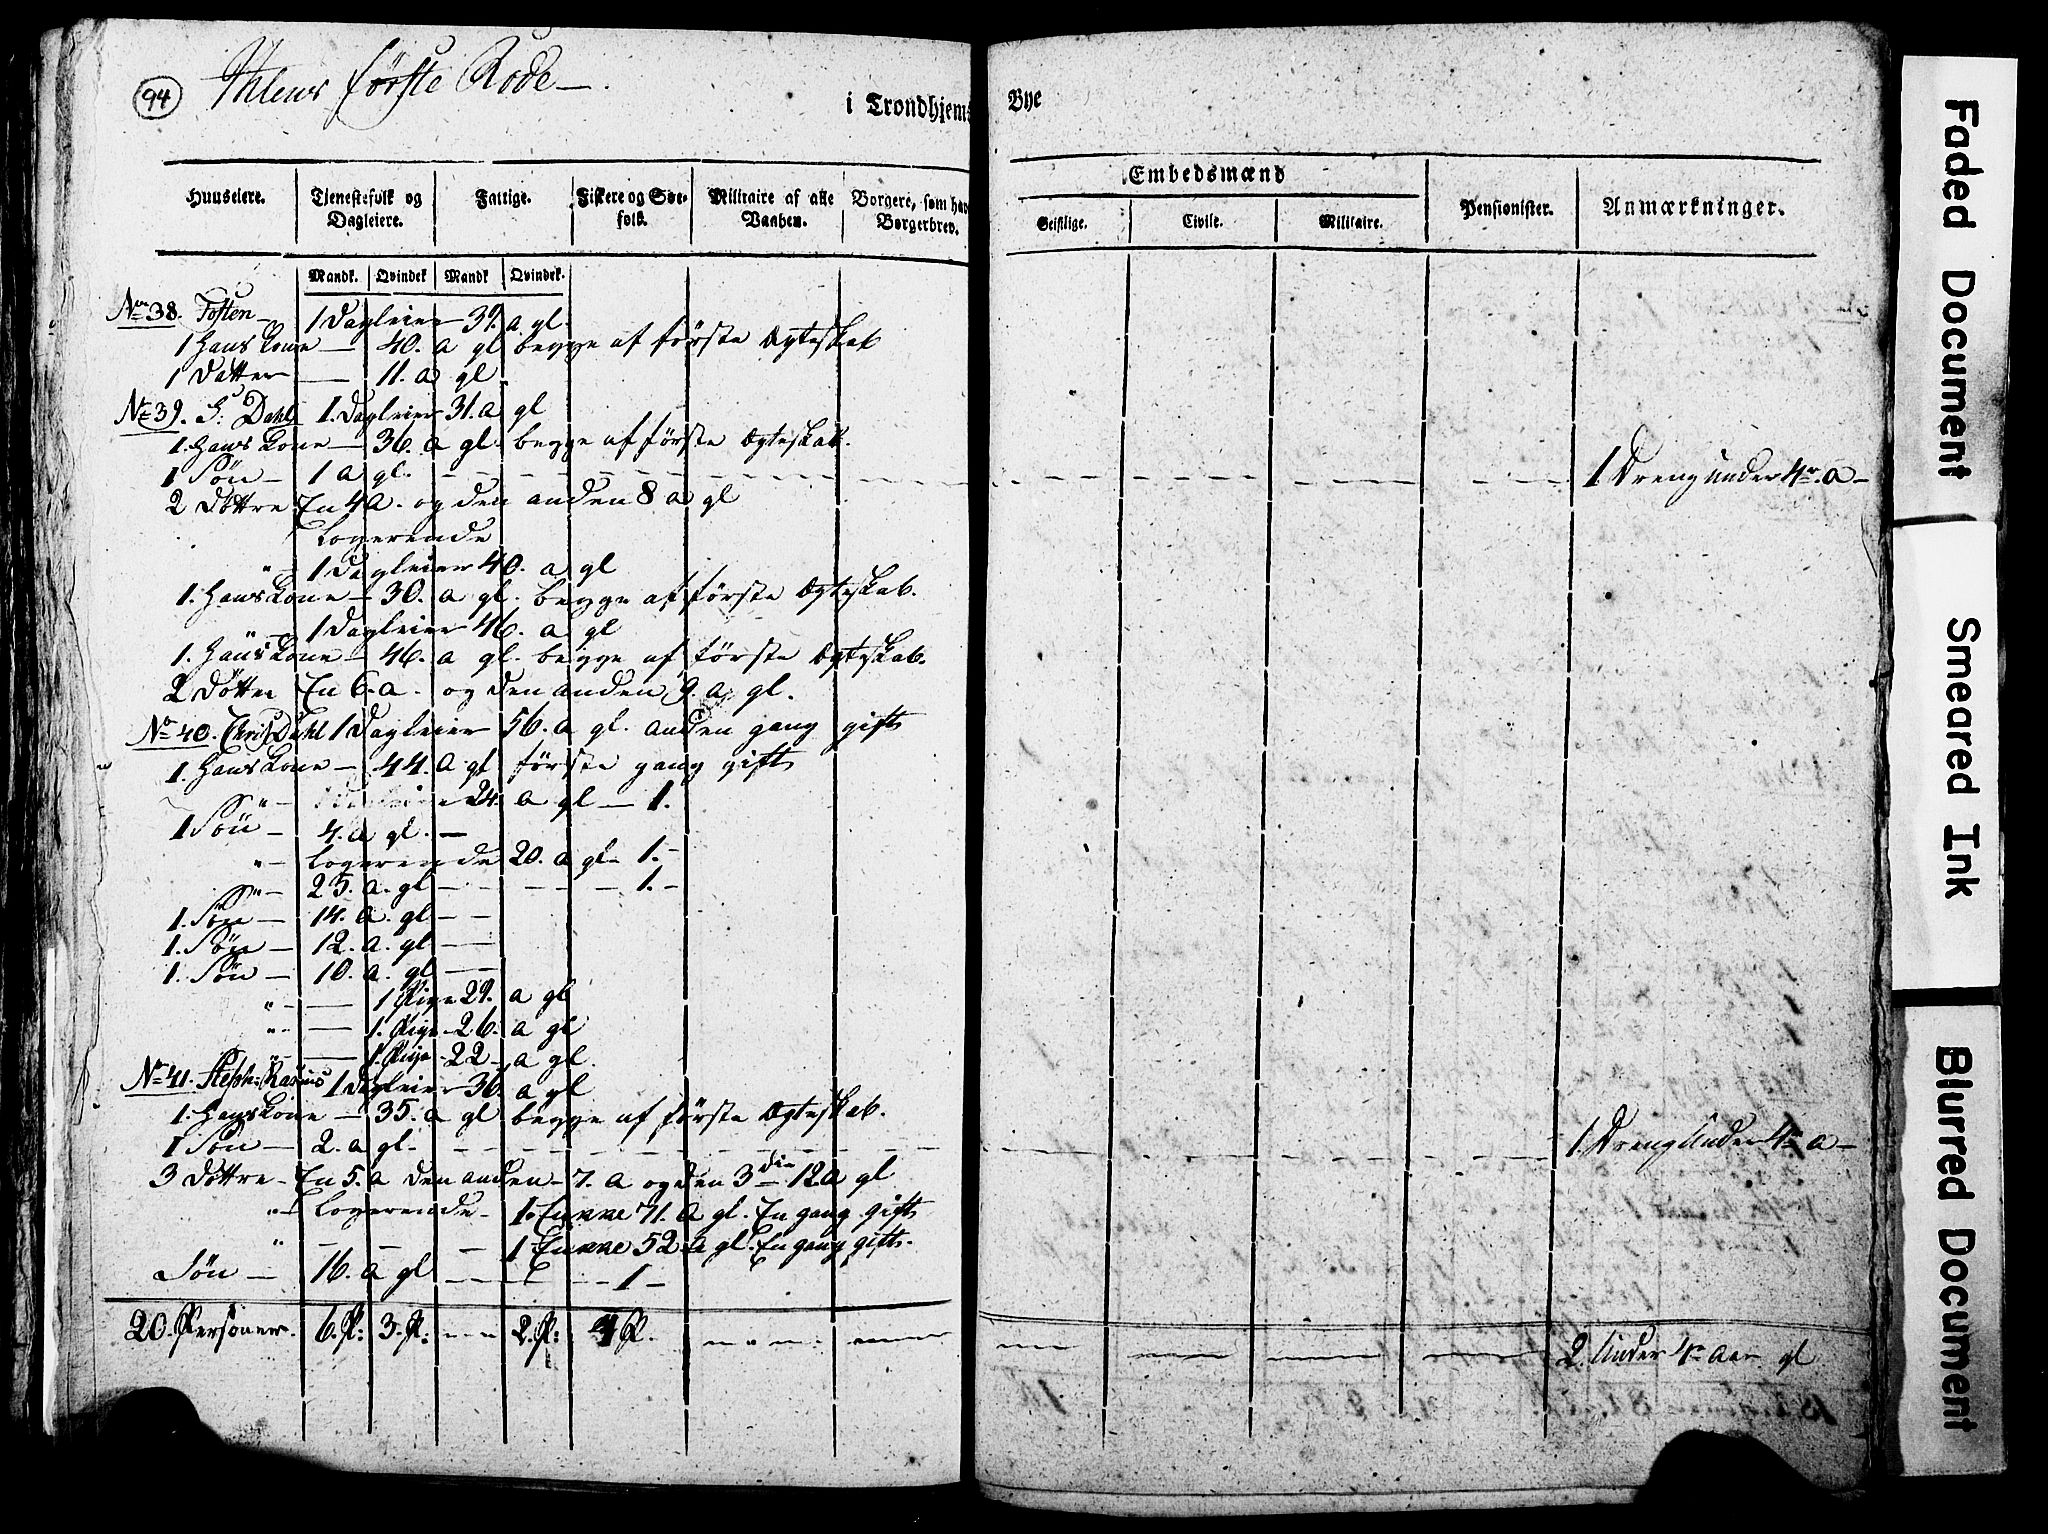 94
Ihlens første Rode
i Trondhjems Bye
Embedsmænd
Huuseiere. Tjenestefolk og Dagleiere. Fattige. Fiskere og Søefolk. Militaire af alle Vaaben. Borgere, som have Borgerbrev. Geistlige. Civile. Militaire. Pensionister. Anmærkninger.
Mandk. Qvindek Mandk Qvindek.
No 38. Tosten 1 Dagleier 39. a gl.
1 Hans Kone — 40. a gl begge af første Ægteskab
1 Datter — 11. a gl
No 39. S: Dahl 1. Dagleier 31. a gl
1. Hans Kone — 36. a gl. begge af første Ægteskab.
1 Søn — 1 a gl. — 1 Dreng under 4re. a —
2 Døttre En 4 a. og den anden 8 a gl
Logerende
" — 1 Dagleier 40. a gl
1. Hans Kone — 30. a gl. begge af første Ægteskab.
1 Dagleier 46. a gl
1. Hans Kone — 46. a gl. begge af første Ægteskab.
2 Døttre En 6. a. og den anden 9. a gl.
No 40. Chris: Dahl 1 Dagleier 56. a gl. anden gang gift
1. Hans Kone — 44. a gl første gang gift
" — 24. a gl — 1.
1 Søn — 4. a gl. —
" — Logerende 20. a gl — 1. —
" — 25. a. gl — 1. —
1. Søn — 14. a. gl — —
1. Søn — 12. a. gl — —
1. Søn — 10. a. gl — —
" — — 1 Pige 29. a gl
" — — 1. Pige — 26. a gl
" — — 1. Pige — 22 — a gl.
No 41. Steph: Rasmus 1 Dagleier 36. a gl
1. Hans Kone — 35. a gl begge af første Ægteskab.
1 Søn — 2. a gl. — 1. Dreng Under 4re a —
3 Døttre — En 5. a den anden — 7. a og den 3die 12 a gl
" — Logerende — 1. Enkke 71. a gl. En gang gift
" — — — 1 Enkke 52. a gl. En gang gift.
Søn — 16. a gl — — 1 —
20. Personer. 6. P: 3. P: — 2. P: 4 P. — 2. Under 4re Aar gl
Faded Document
Smeared Ink
Blurred Document